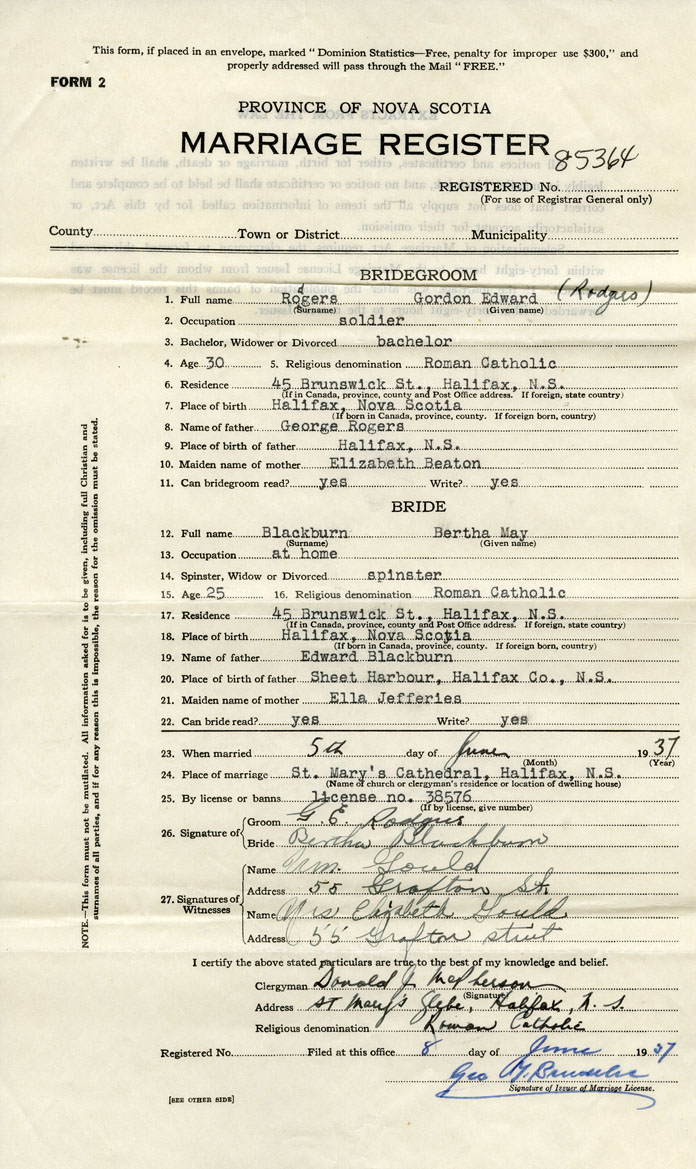 This form, if placed in an envelope, marked "Dominion Statistics—Free, penalty for improper use $300," and
properly addressed will pass through the Mail "FREE."
FORM 2
PROVINCE OF NOVA SCOTIA
MARRIAGE REGISTER
85364
REGISTERED No.
(For use of Registrar General only)
County Town or District Municipality
BRIDEGROOM
d
1. Full name Rogers Gordon Edward (Rodgers)
(Surname) (Given name)
2. Occupation soldier
3. Bachelor, Widower or Divorced bachelor
4. Age 30 5. Religious denomination Roman Catholic
6. Residence 45 Brunswick St., Halifax, N.S.
(If in Canada, province, county and Post Office address. If foreign, state country)
7. Place of birth Halifax, Nova Scotia
(If born in Canada, province, county. If foreign born, country)
8. Name of father George Rogers
9. Place of birth of father Halifax, N.S.
10. Maiden name of mother Elizabeth Beaton
11. Can bridegroom read? yes Write? yes
BRIDE
12. Full name Blackburn Bertha May
(Surname) (Given name)
13. Occupation at home
14. Spinster, Widow or Divorced spinster
15. Age 25 16. Religious denomination Roman Catholic
17. Residence 45 Brunswick St., Halifax, N.S.
(If in Canada, province, county and Post Office address. If foreign, state country)
18. Place of birth Halifax, Nova Scotia
(If born in Canada, province, county. If foreign born, country)
19. Name of father Edward Blackburn
20. Place of birth of father Sheet Harbour, Halifax Co., N.S.
21. Maiden name of mother Ella Jefferies
22. Can bride read? yes Write? yes
23. When married 5th day of June 1937
(Month) (Year)
24. Place of marriage St. Mary's Cathedral, Halifax, N.S.
(Name of church or clergyman's residence or location of dwelling house)
25. By license or banns license no. 38576
(If by license, give number)
26. Signature of Groom G. E. Rodgers
Bride Bertha Blackburn
27. Signatures of Witnesses
Name Wm. Gould
Address 55 Grafton St.
Name Mrs Elizabeth Gould
Address 55 Grafton street
I certify the above stated particulars are true to the best of my knowledge and belief.
Clergyman Donald J. McPherson
(Signature)
Address St Mary's Glebe, Halifax, N.S.
Religious denomination Roman Catholic
Registered No. Filed at this office 8 day of June 1937
Geo
Signature of Issuer of Marriage License.
[SEE OTHER SIDE]
NOTE.—This form must not be mutilated. All information asked for is to be given, including full Christian and
surnames of all parties, and if for any reason this is impossible, the reason for the omission must be stated.